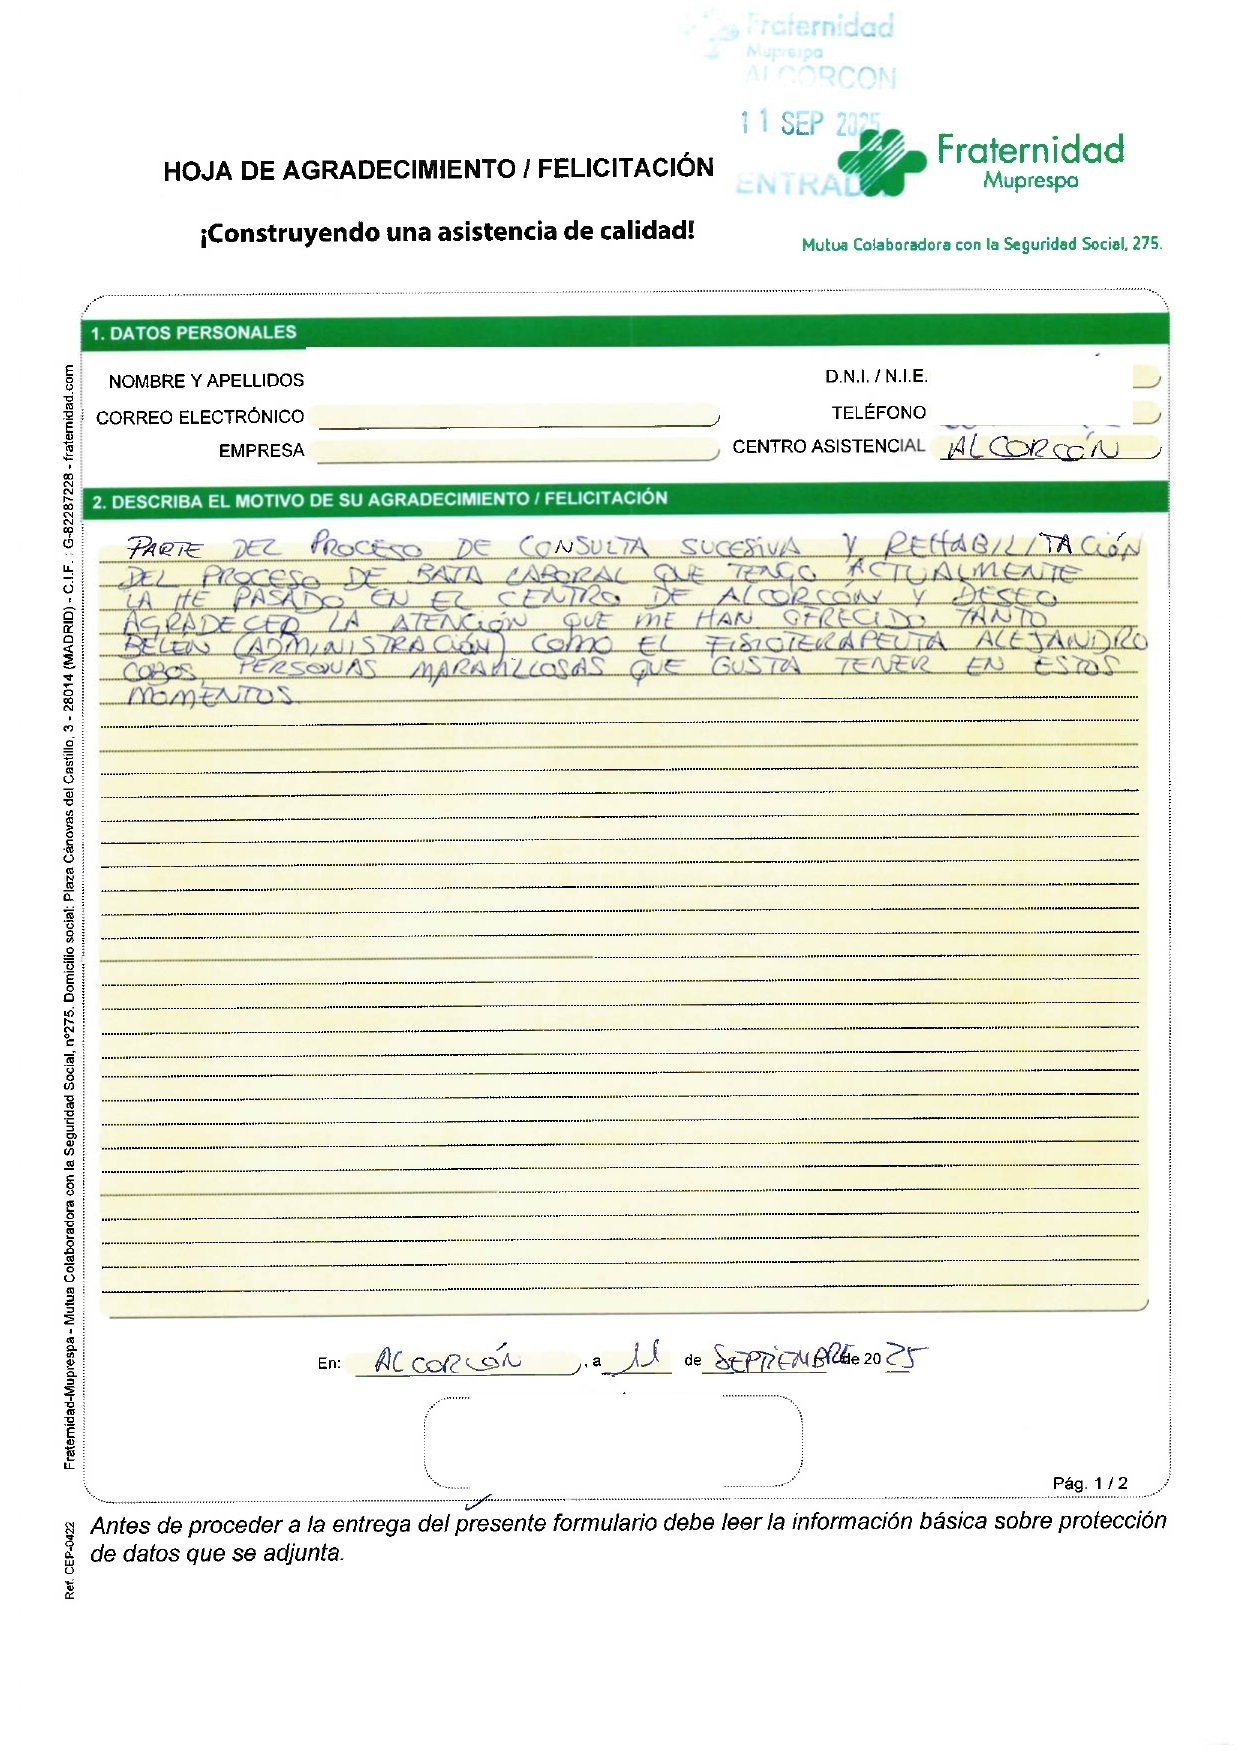 Fraternidad
Muprespa
ALCORCON
11 SEP 2025
ENTRAD
HOJA DE AGRADECIMIENTO / FELICITACIÓN
¡Construyendo una asistencia de calidad!
Fraternidad
Muprespa
Mutua Colaboradora con la Seguridad Social, 275.
1. DATOS PERSONALES
NOMBRE Y APELLIDOS
D.N.I. / N.I.E.
CORREO ELECTRÓNICO
TELÉFONO
EMPRESA
CENTRO ASISTENCIAL ALCORCÓN
2. DESCRIBA EL MOTIVO DE SU AGRADECIMIENTO / FELICITACIÓN
PARTE DEL PROCESO DE CONSULTA SUCESIVA Y REHABILITACIÓN
DEL PROCESO DE BAJA LABORAL QUE TENGO ACTUALMENTE
LA HE PASADO EN EL CENTRO DE ALCORCÓN Y DESEO
AGRADECER LA ATENCIÓN QUE ME HAN OFRECIDO TANTO
BELÉN (ADMINISTRACIÓN) COMO EL FISIOTERAPEUTA ALEJANDRO
COBOS, PERSONAS MARAVILLOSAS QUE GUSTA TENER EN ESTOS
MOMENTOS.
En: ALCORCÓN, a 11 de SEPTIEMBRE de 2025
Pág. 1 / 2
Antes de proceder a la entrega del presente formulario debe leer la información básica sobre protección
de datos que se adjunta.
Fraternidad-Muprespa - Mutua Colaboradora con la Seguridad Social, nº275. Domicilio social: Plaza Cánovas del Castillo, 3 - 28014 (MADRID) - C.I.F. : G-82287228 - fraternidad.com
Ref. CEP-0422